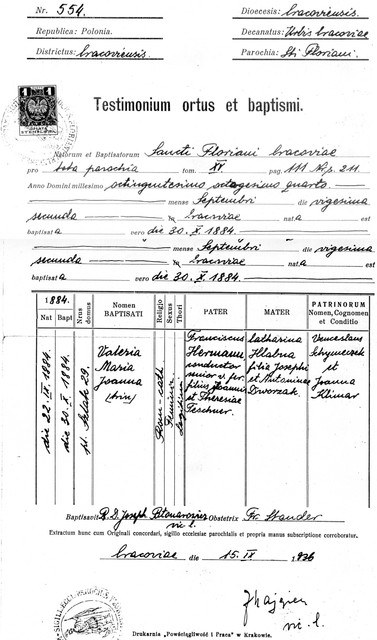 Nr. 554.
Dioecesis: Cracoviensis.
Republica: Polonia.
Decanatus: Urbis Cracoviae
Districtus: Cracoviensis.
Parochia: Sti Floriani.
Testimonium ortus et baptismi.
Natorum et Baptisatorum Sancti Floriani Cracoviae
pro tota parochia tom. XV pag. 111 N. p. 211.
Anno Domini millesimo octingentesimo octogesimo quarto.
mense Septembri die vigesima
secunda in Cracoviae nata est
baptisata vero die 30. X. 1884.
mense Septembri die vigesima
secunda in Cracoviae nata est
baptisata vero die 30. X. 1884.
1884.
Nat Bapt Nrus domus Nomen BAPTISATI Religio Sexus Thori PATER MATER PATRINORUM Nomen, Cognomen et Conditio
die 22. IX. 1884. die 30. X. 1884. 29. Valeria Maria Joanna Rom-cath Feminini Legitimi
Franciscus Hermann conductor junior filius Joannis et Theresiae Feschner.
Catharina Hlabna filia Josephi et Antoninae Dworzak.
Venceslaus et Joanna Klimar
Baptisavit R. D. Joseph vic. l. Obstetrix Fr. Stander
Extractum hunc cum Originali concordari, sigillo ecclesiae parochialis et propria manus subscriptione corroboratur.
Cracoviae die 15. IX 1936
vic. l.
Drukarnia „Powściągliwość i Praca" w Krakowie.